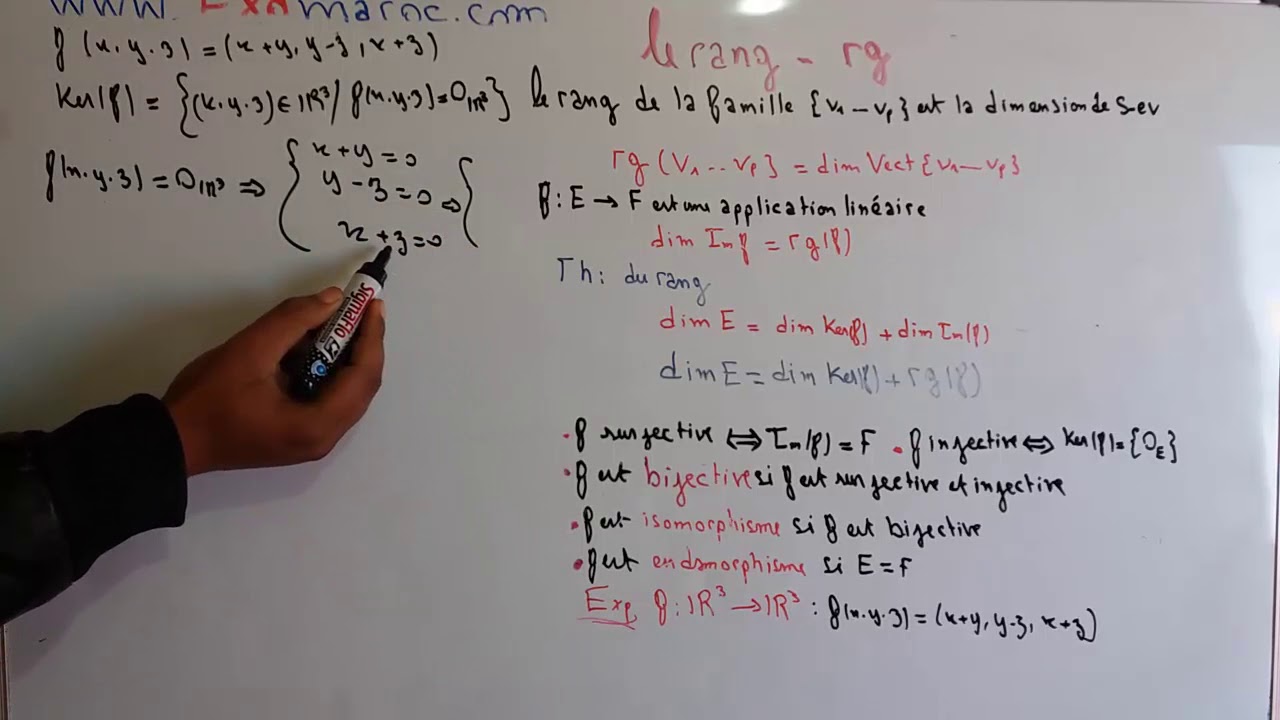 www.Exomaroc.com
f(x.y.z) = (x+y, y-z, x+z)
Ker(f) = {(x.y.z) ∈ IR³ / f(x.y.z) = 0IR³}
f(x.y.z) = 0IR³ ⇒ { x+y=0
y-z=0 ⇔ {
x+z=0
SigmaFlo
le rang - rg
le rang de la famille {v1 — vp} est la dimension de s-ev
rg (v1 ... vp} = dim Vect {v1 — vp}
f : E → F est une application linéaire
dim Imf = rg(f)
Th: du rang
dim E = dim Ker(f) + dim Im(f)
dim E = dim Ker(f) + rg(f)
• f surjective ⇔ Im(f) = F • f injective ⇔ Ker(f) = {0E}
• f est bijective si f est surjective et injective
• f est isomorphisme si f est bijective
• f est endomorphisme si E = F
Exp f : IR³ → IR³ : f(x.y.z) = (x+y, y-z, x+z)